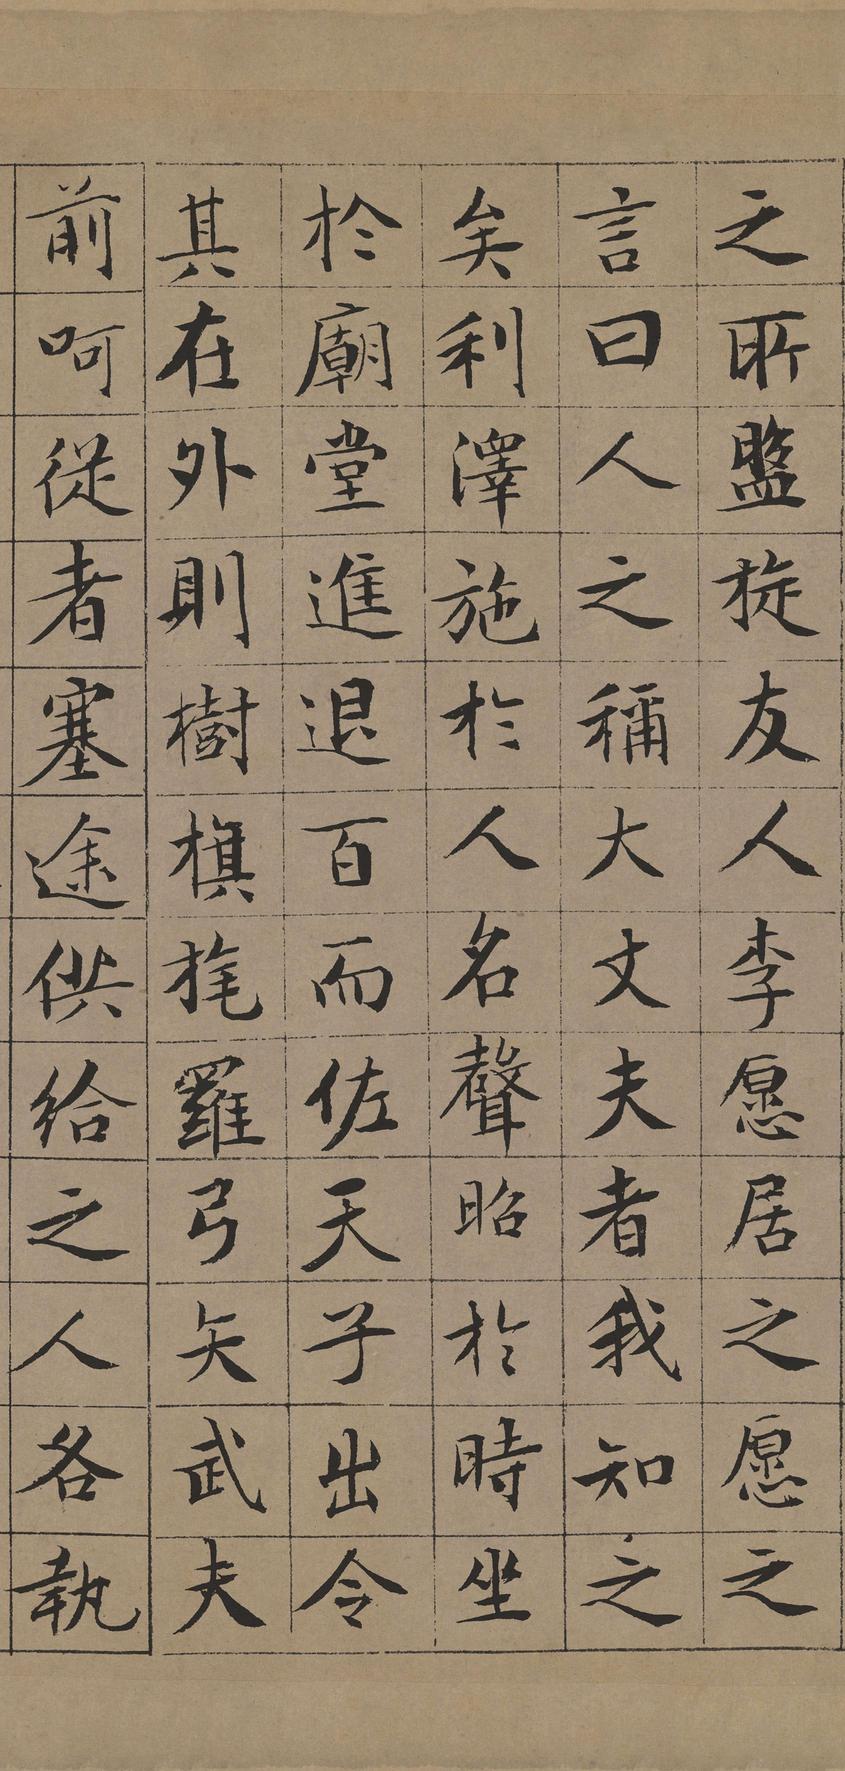 之所盤旋友人李愿居之愿之
言曰人之稱大丈夫者我知之
矣利澤施於人名聲昭於時坐
於廟堂進退百而佐天子出令
其在外則樹旗旄羅弓矢武夫
前呵從者塞途供給之人各執